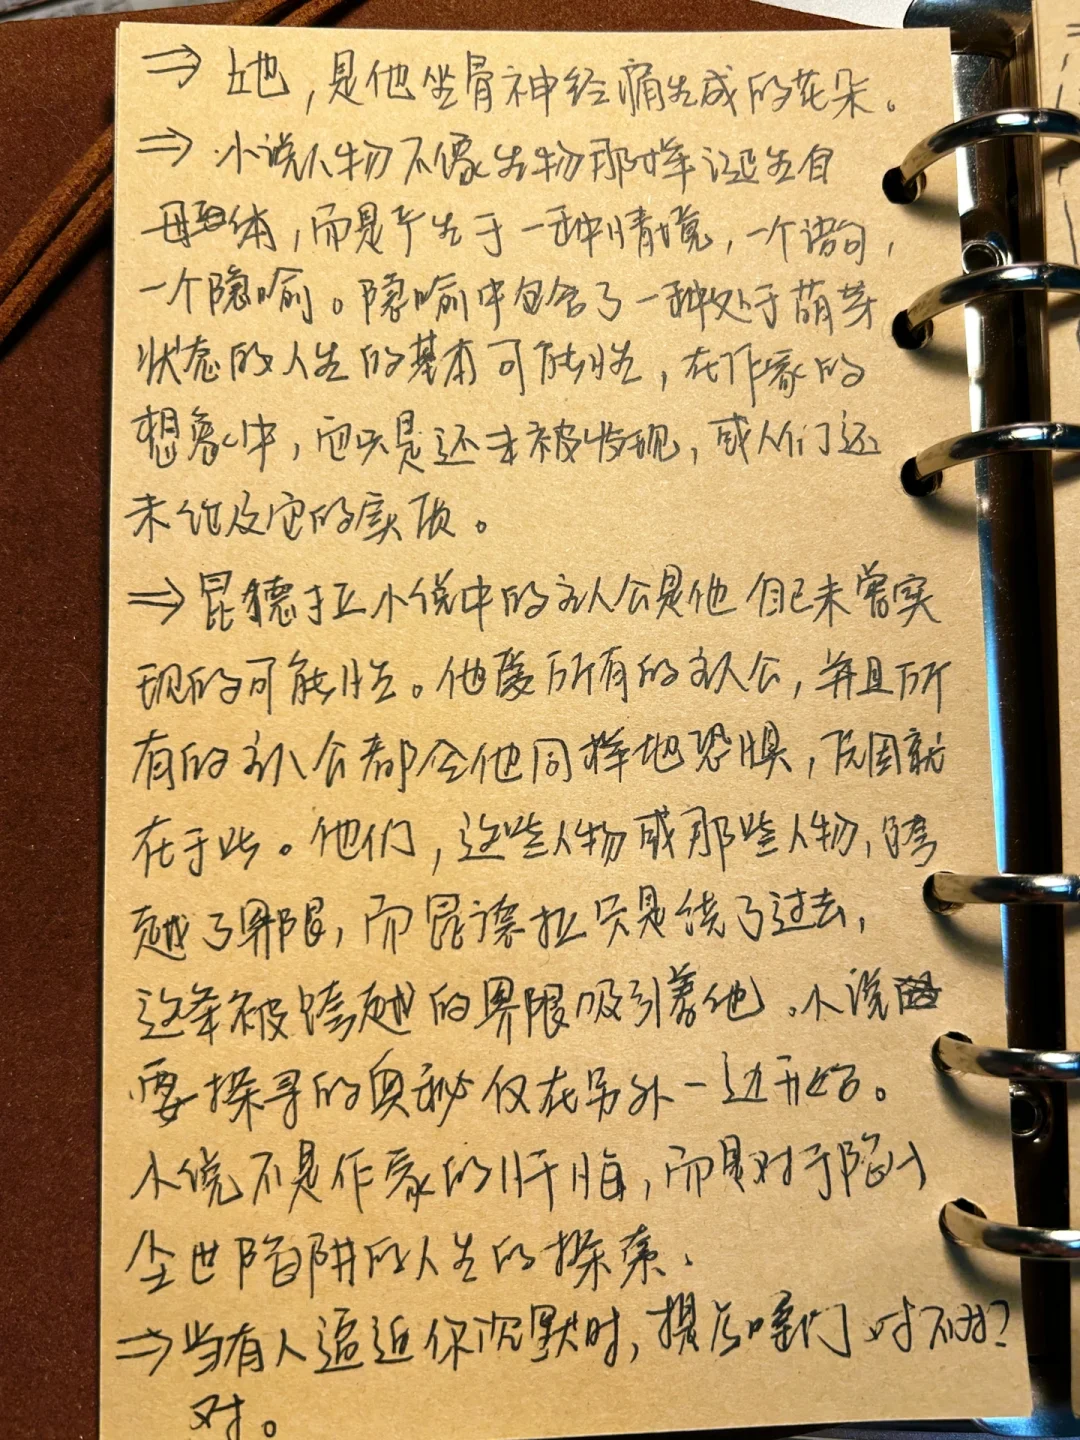 ⇒ 她,是他坐骨神经痛生成的花朵。
⇒ 小说人物不像生物那样诞生自
母体,而是产生于一种情境,一个语句,
一个隐喻。隐喻中包含了一种处于萌芽
状态的人生的基本可能性,在作家的
想象中,它只是还未被发现,或人们还
未论及它的实质。
⇒ 昆德拉小说中的主人公是他自己未曾实
现的可能性。他爱所有的主人公,并且所
有的主人公都令他同样地恐惧,原因就
在于此。他们,这些人物或那些人物,跨
越了界限,而昆德拉只是绕了过去,
这条被跨越的界限吸引着他。小说
要探寻的奥秘仅在另外一边开始。
小说不是作家的忏悔,而是对于陷入
尘世陷阱的人生的探索。
⇒ 当有人逼近你沉默时,提后 们 对不对?
对。